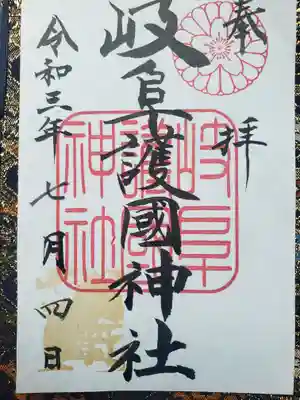 奉拝
岐阜護國神社
岐阜護國神社
令和三年七月四日